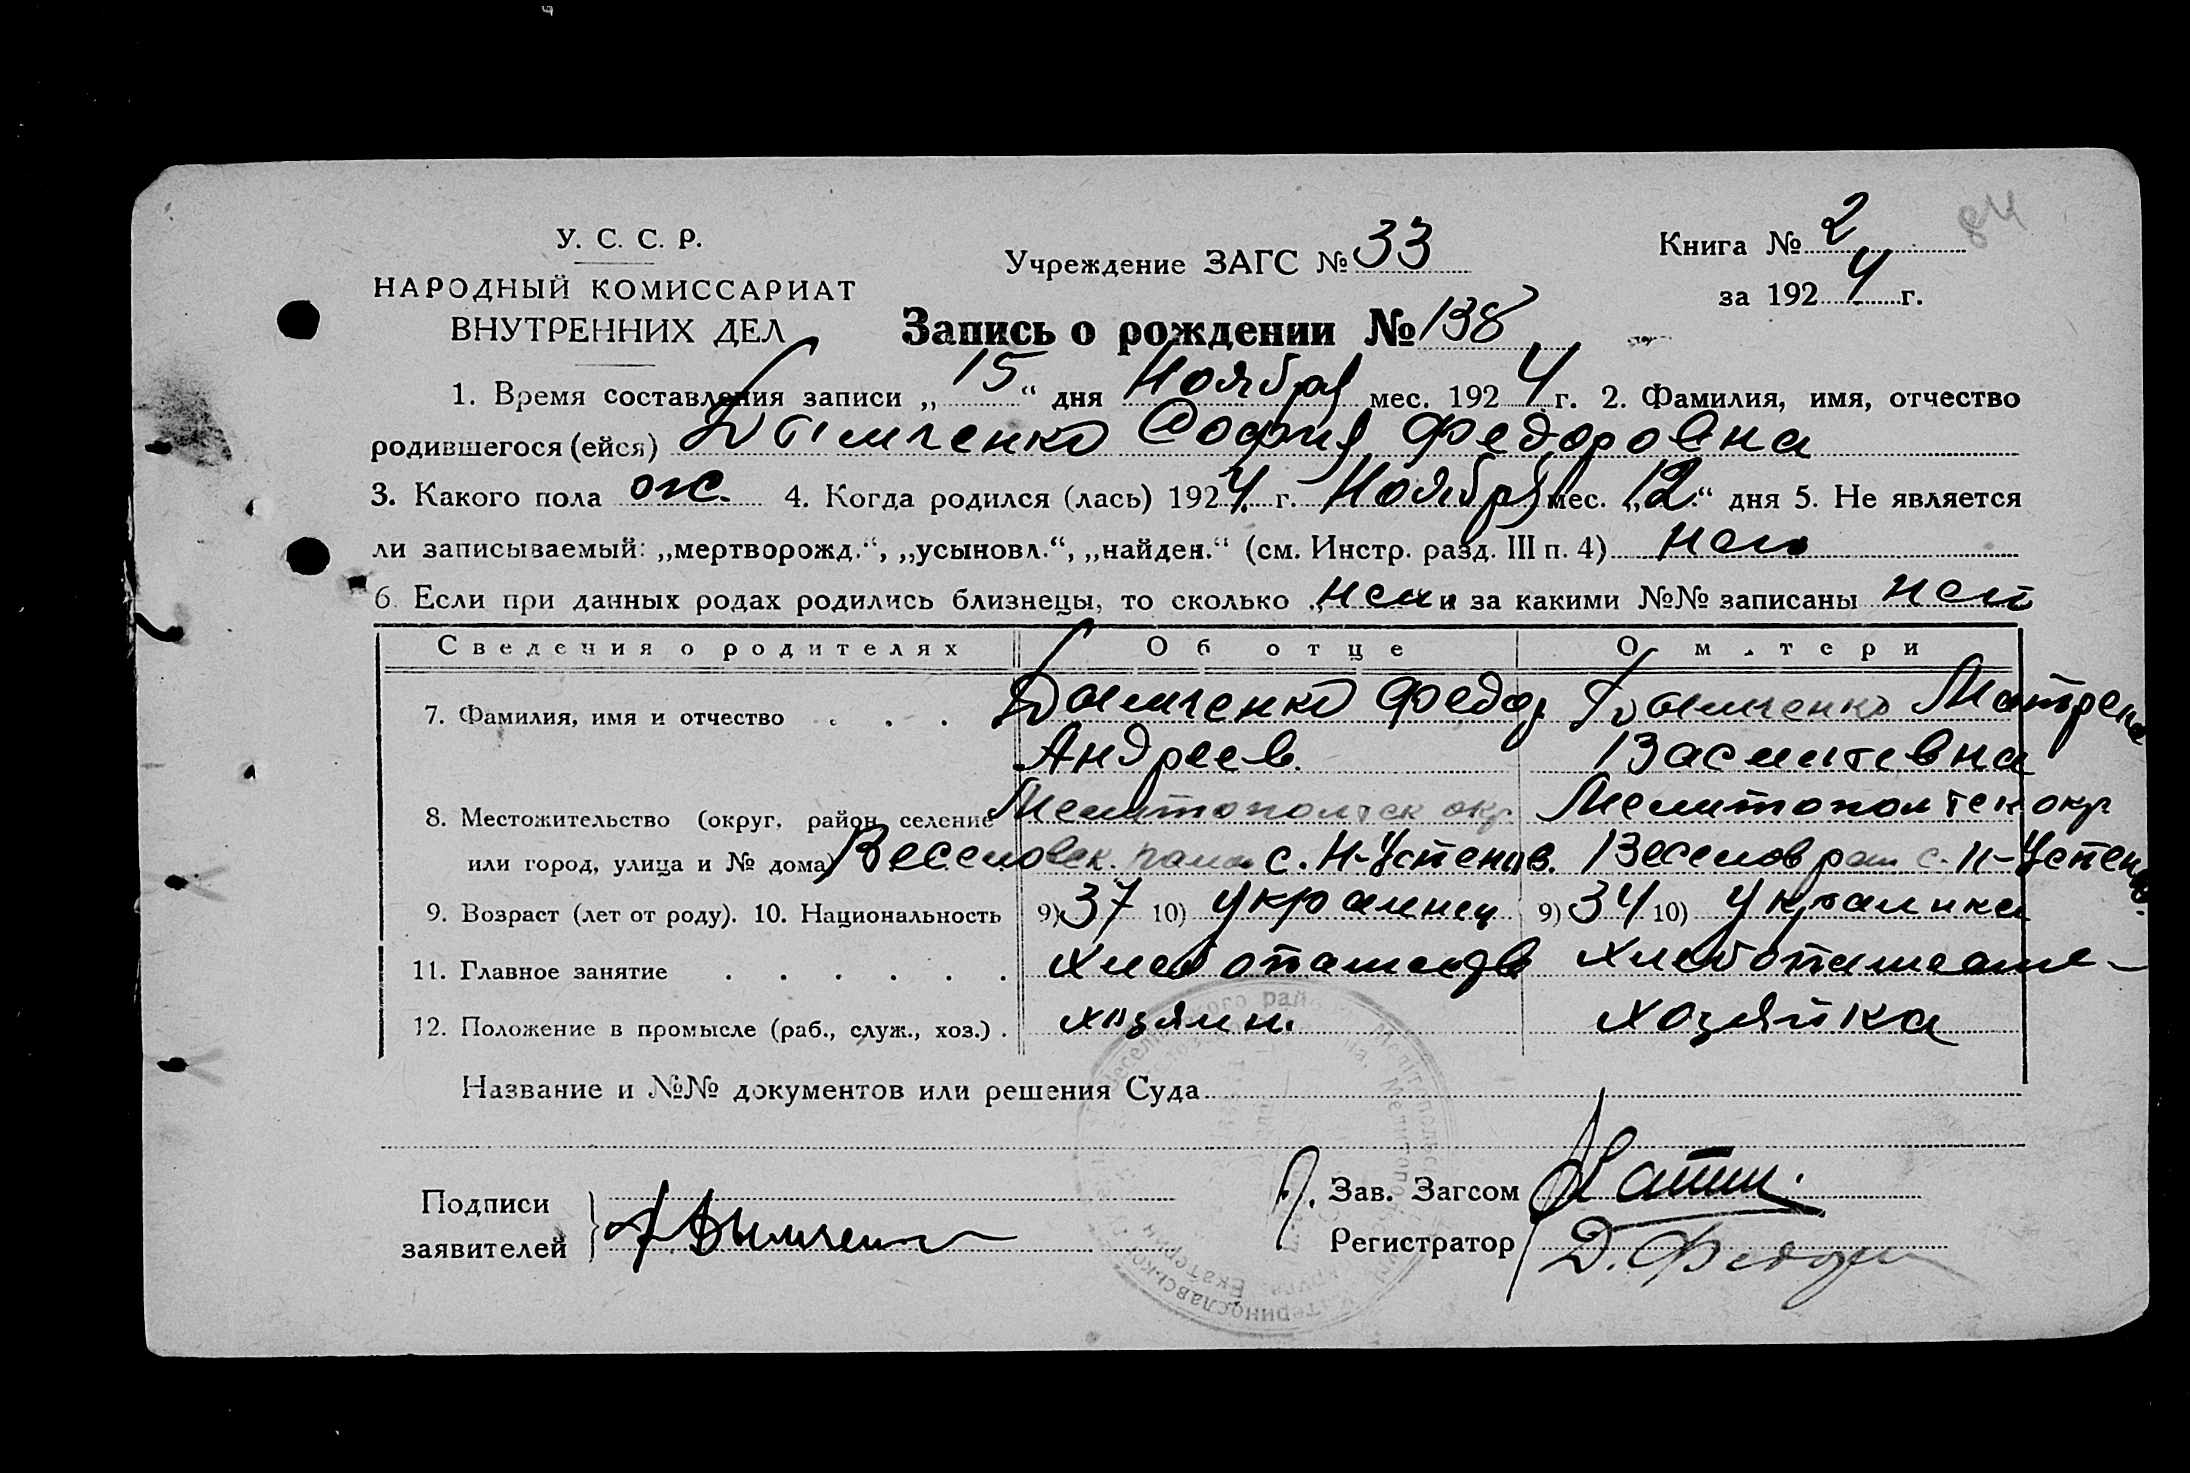 У. С. С. Р.
НАРОДНЫЙ КОМИССАРИАТ
ВНУТРЕННИХ ДЕЛ
Учреждение ЗАГС № 33
Книга № 2
84
за 1924 г.
Запись о рождении № 138
1. Время составления записи „15“ дня Ноября мес. 1924 г. 2. Фамилия, имя, отчество
родившегося (ейся) София Федоровна
3. Какого пола ж. 4. Когда родился (лась) 1924 г. Ноября мес. „12“ дня 5. Не является
ли записываемый: „мертворожд.“, „усыновл.“, „найден.“ (см. Инстр. разд. III п. 4) нет
6. Если при данных родах родились близнецы, то сколько нет и за какими №№ записаны нет
Сведения о родителях Об отце О матери
7. Фамилия, имя и отчество . . . Федор Матрена
Андреев. Васильевна
8. Местожительство (округ, район, селение Мелитопольск окр. Мелитопольск окр
или город, улица и № дома) Веселовск. с. Веселов с.
9. Возраст (лет от роду). 10. Национальность 9) 37 10) украинец 9) 34 10) украинка
11. Главное занятие . . . . . .
12. Положение в промысле (раб., служ., хоз.) . хозяин. хозяйка
Название и №№ документов или решения Суда
Подписи
заявителей
Зав. Загсом
Регистратор